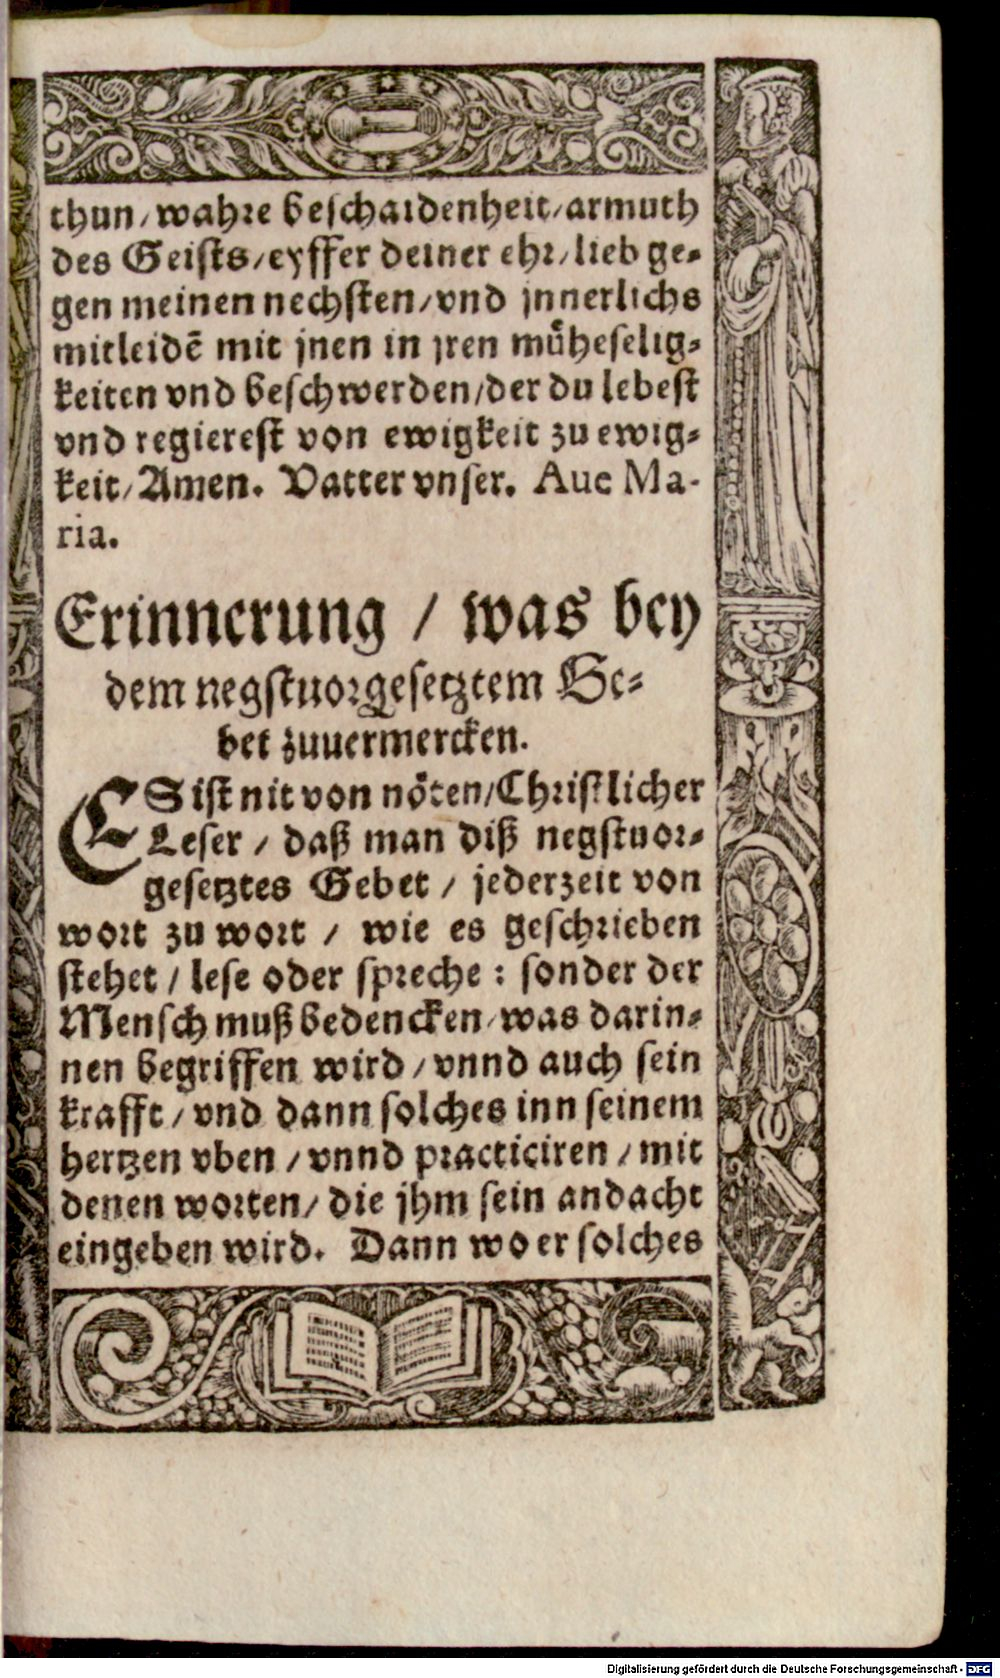 thun/wahre beschaidenheit/armuth
des Geists/eyffer deiner ehr/lieb ge-
gen meinen nechsten/vnd jnnerlichs
mitleidē mit jnen in jren müheselig-
keiten vnd beschwerden/der du lebest
vnd regierest von ewigkeit zu ewig-
keit/Amen. Vatter vnser. Aue Ma-
ria.
Erinnerung / was bey
dem negstuorgesetztem Ge-
bet zuuermercken.
ES ist nit von nöten/Christlicher
Leser / daß man diß negstuor-
gesetztes Gebet / jederzeit von
wort zu wort / wie es geschrieben
stehet / lese oder spreche : sonder der
Mensch muß bedencken/was darin-
nen begriffen wird / vnnd auch sein
krafft / vnd dann solches inn seinem
hertzen vben / vnnd practiciren / mit
denen worten/ die jhm sein andacht
eingeben wird. Dann wo er solches
Digitalisierung gefördert durch die Deutsche Forschungsgemeinschaft - DFG